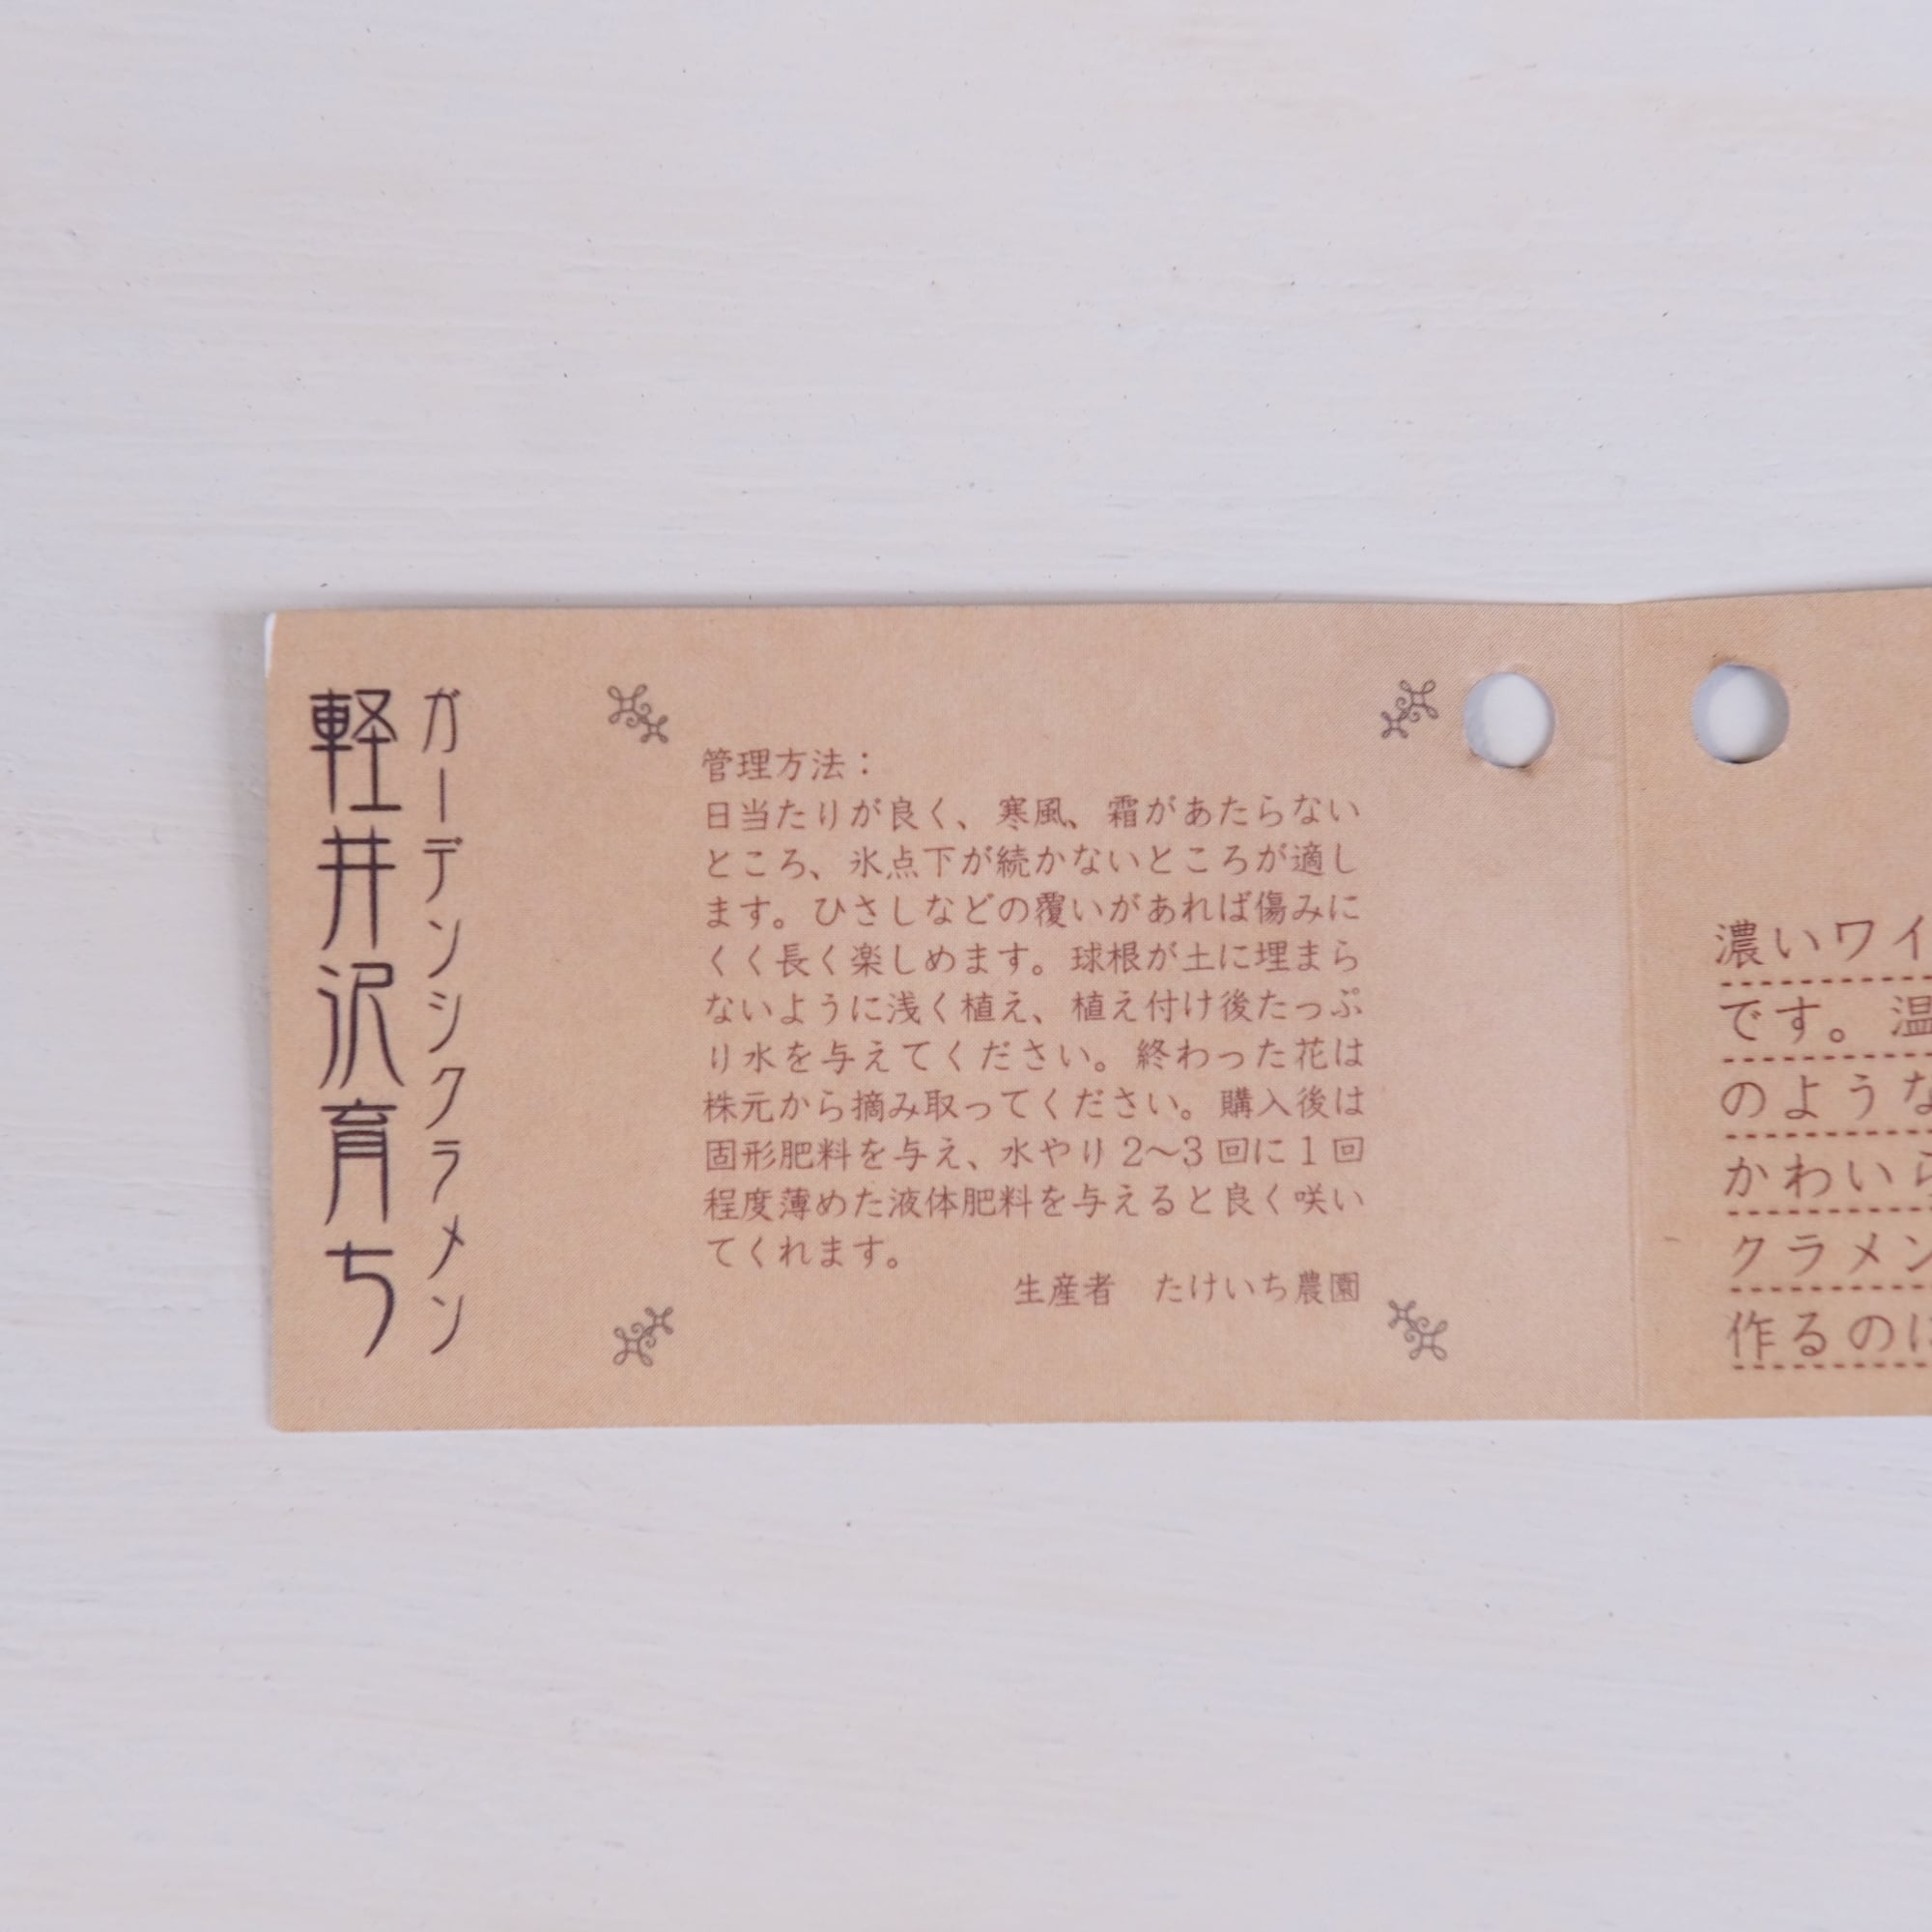 ガーデンシクラメン
軽井沢育ち
管理方法：
日当たりが良く、寒風、霜があたらない
ところ、氷点下が続かないところが適し
ます。ひさしなどの覆いがあれば傷みに
くく長く楽しめます。球根が土に埋まら
ないように浅く植え、植え付け後たっぷ
り水を与えてください。終わった花は
株元から摘み取ってください。購入後は
固形肥料を与え、水やり2〜3回に1回
程度薄めた液体肥料を与えると良く咲い
てくれます。
生産者　たけいち農園
濃いワイ
です。温
のような
かわいら
クラメン
作るのに